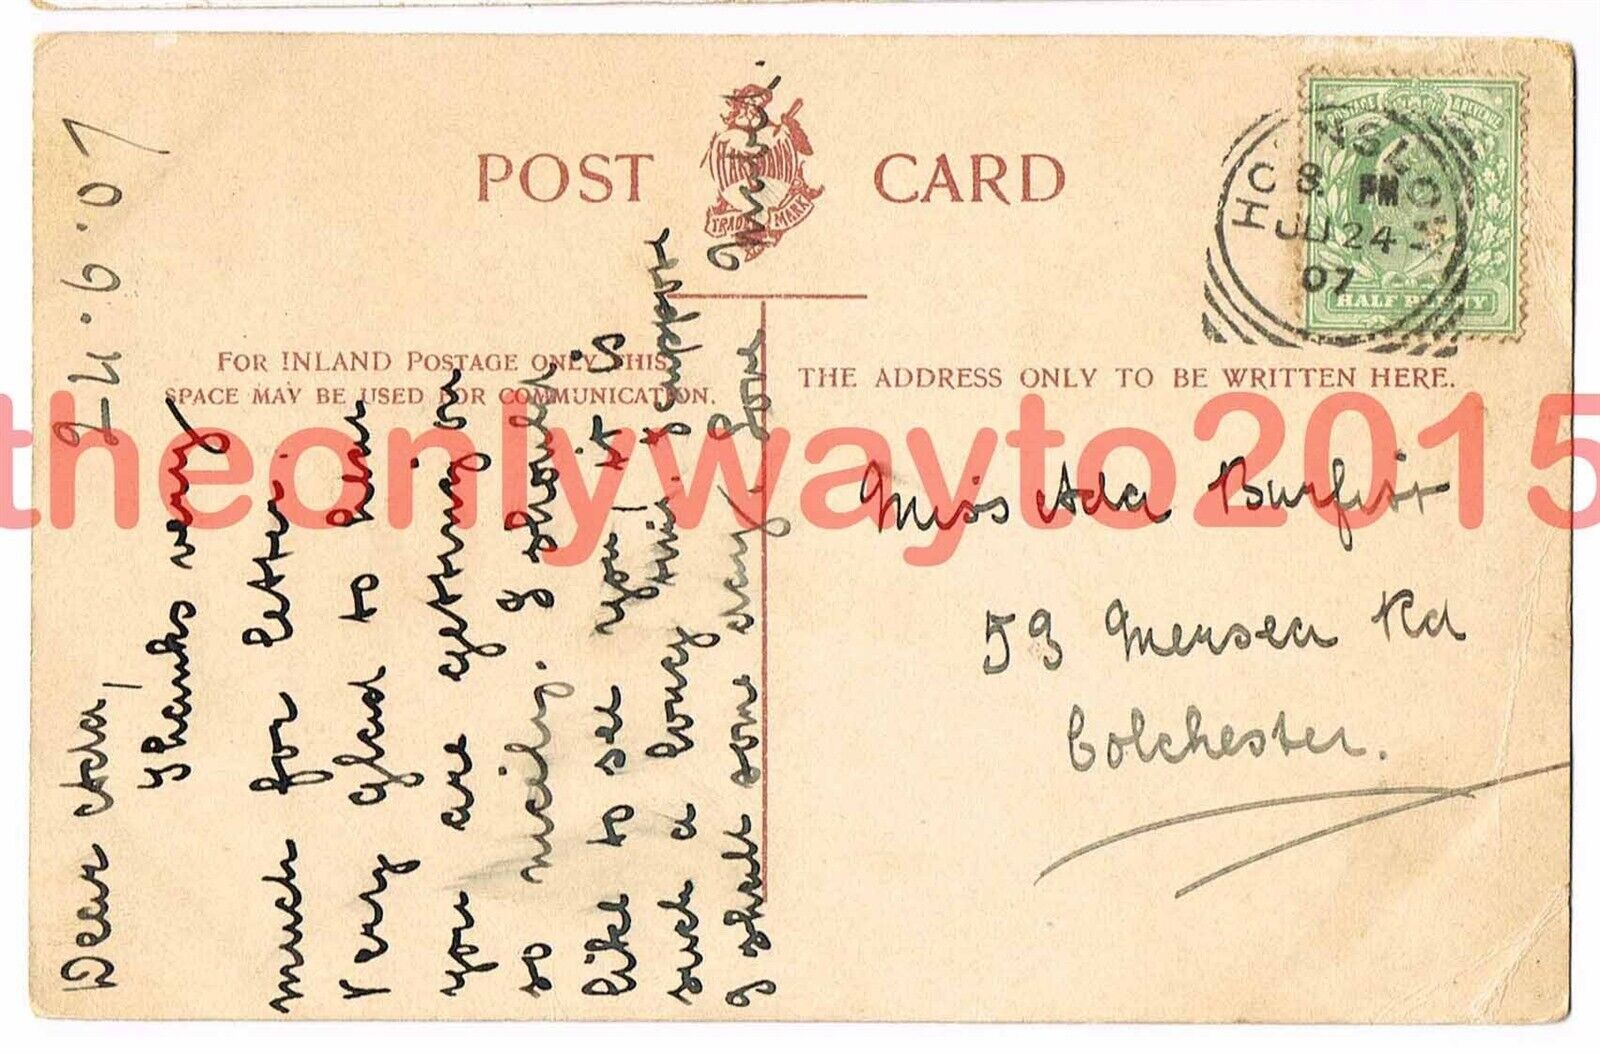 POST CARD
HARTMANN
TRADE MARK
FOR INLAND POSTAGE ONLY THIS
SPACE MAY BE USED FOR COMMUNICATION.
THE ADDRESS ONLY TO BE WRITTEN HERE.
POSTAGE & REVENUE
HALF PENNY
HOUNSLOW
8 PM
24
07
24.6.07
Dear Ada,
Thanks very
much for letter.
Very glad to hear
you are getting on
so nicely. I should
like to see you, it is
such a long time. I suppose
I shall some day. Love
Miss Ada
53 Mersea Rd
Colchester.
theonlywayto2015